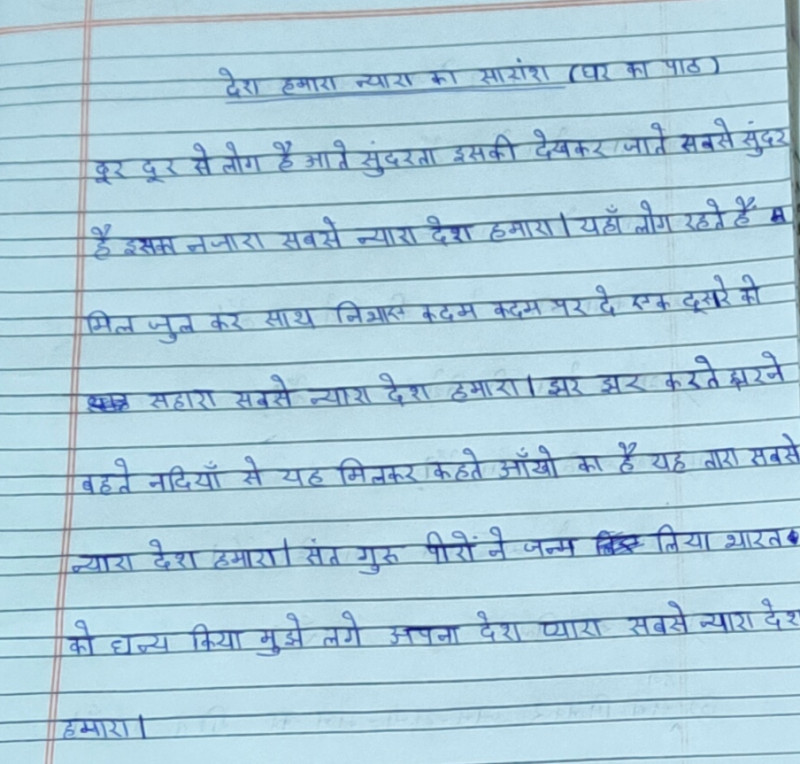 देश हमारा न्यारा का सारांश (घर का पाठ)
दूर दूर से लोग है आते सुंदरता इसकी देखकर जाते सबसे सुंदर
है इसका नजारा सबसे न्यारा देश हमारा। यहाँ लोग रहते हैं
मिल जुल कर साथ कदम कदम पर दे एक दूसरे को
सहारा सबसे न्यारा देश हमारा। झर झर करते झरने
बहते नदियाँ से यह मिलकर कहते आँखो का है यह तारा सबसे
न्यारा देश हमारा। संत गुरु पीरों ने जन्म लिया भारत
को धन्य किया मुझे लगे अपना देश प्यारा सबसे न्यारा देश
हमारा।